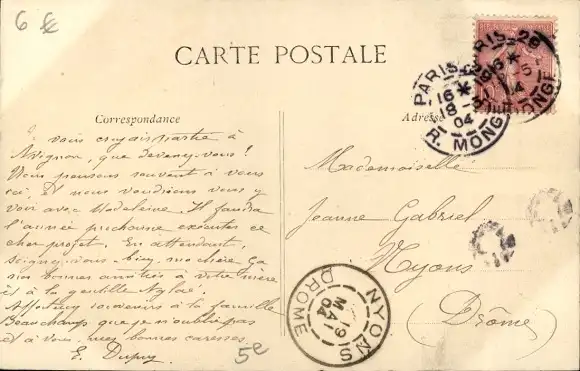 6 fr
CARTE POSTALE
PARIS 26
16 * 18-5 04
R. MONGE
Correspondance
Adresse
Je vous croyais partie à
Avignon, que devenez-vous ?
Nous pensons souvent à vous
ici. Et nous voudrions vous y
voir avec Madeleine. Il faudra
l'année prochaine exécuter ce
cher projet. En attendant,
soignez-vous bien, ma chère
nos bonnes amitiés à votre mère
et à la gentille
Affectueux souvenirs à la famille
Beauchamp que je n'oublie pas
et à vous, mes bonnes caresses.
E. Dupuy
5e
Mademoiselle
Jeanne Gabriel
Nyons
(Drôme)
NYONS
19
MAI
04
DROME